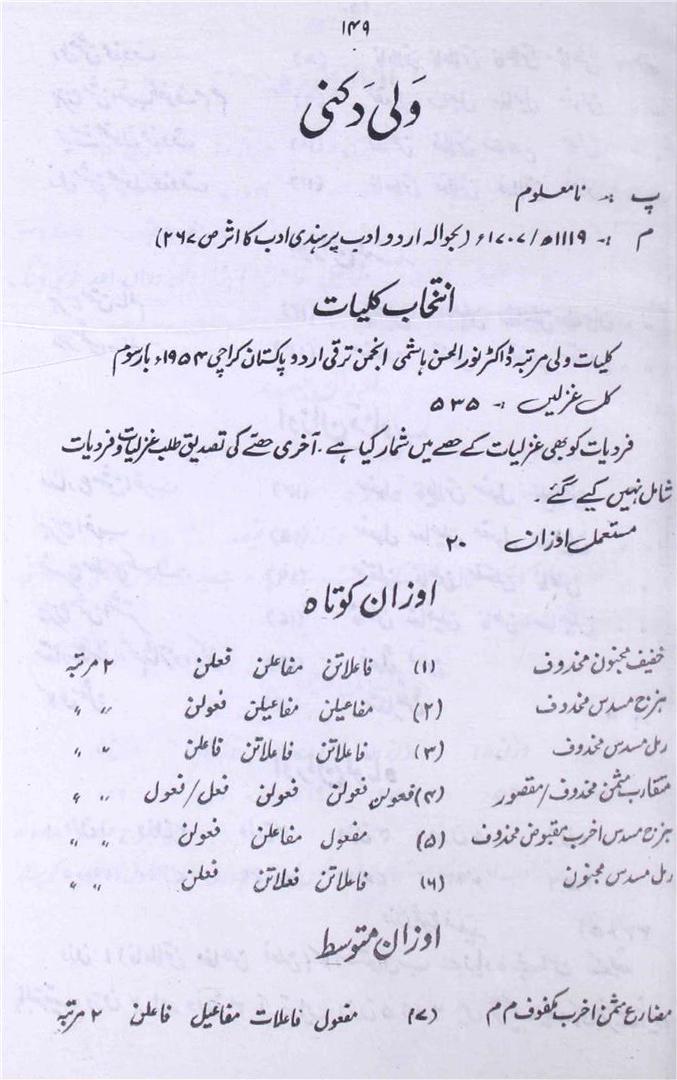 ۱۴۹
وَلی دَکنی
پ :۔ نامعلوم
م :۔ ۱۱۱۹ھ/۱۷۰۷ء (بحوالہ اردو ادب پر ہندی ادب کا اثر ص ۲۶۷)
انتخاب کلیات
کلیات ولی مرتبہ ڈاکٹر نور الحسن ہاشمی انجمن ترقی اردو پاکستان کراچی ۱۹۵۴ء بار سوم
کل غزلیں :۔ ۵۳۵
فردیات کو بھی غزلیات کے حصے میں شمار کیا ہے۔ آخری حصّے کی تصدیق طلب غزلیات و فردیات
شامل نہیں کیے گئے۔
مستعمل اوزان ۲۰
اوزان کوتاہ
خفیف مجنون محذوف (۱) فاعلاتن مفاعلن فعلن ۲ مرتبہ
ہزج مسدس محذوف (۲) مفاعیلن مفاعیلن فعولن 〃 〃
رمل مسدس محذوف (۳) فاعلاتن فاعلاتن فاعلن 〃 〃
متقارب مثمن محذوف/مقصور (۴) فعولن فعولن فعولن فعل/فعول 〃 〃
ہزج مسدس اخرب مقبوض محذوف (۵) مفعول مفاعلن فعولن 〃 〃
رمل مسدس مجنون (۶) فاعلاتن فعلاتن فعلن 〃 〃
اوزان متوسط
مضارع مثمن اخرب مکفوف م م (۷) مفعول فاعلات مفاعیل فاعلن ۲ مرتبہ